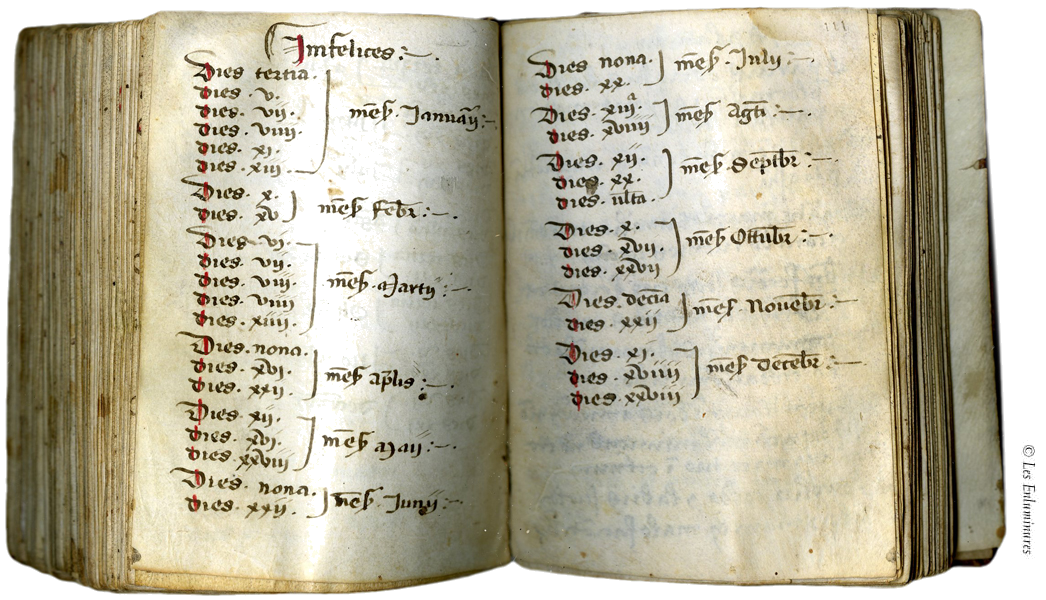 Infelices :~ .
Dies tertia .
dies . v .
dies . vii .
dies . viiii .
dies . xi .
dies . xiii .
mẽs͛ . Januarii :~
Dies . x .
dies . xv
mẽs͛ febr̃ :~ .
Dies vi .
dies . vii .
dies . viii .
dies . viiii
dies . xiiii .
mẽs͛ . Martij
Dies . nona .
dies . xvi .
dies . xxii .
mẽs͛ ap̃lis :~ .
Dies . xii .
dies . xvi .
dies . xxviii
mẽs͛ Maii :~ .
Dies . nona .
dies . xxii .
mẽs͛ . Junij :~
111
Dies nona .
dies . xx .
mẽs͛ . Julij :~
Dies . xiii .
dies . xviiii
mẽs͛ Agt̃i :~
Dies . xii .
dies . xx .
dies . ult̃a
mẽs͛ Septẽbr :~
Dies . x .
dies . xvii .
dies . xxvii
mẽs͛ Ottubr̃ :~ .
Dies . decĩa
dies . xxii
mẽs͛ . Nouẽbr :~
Dies . xi .
dies . xviiii
dies . xxviii
mẽs͛ decẽbr :~
© Les Enluminures